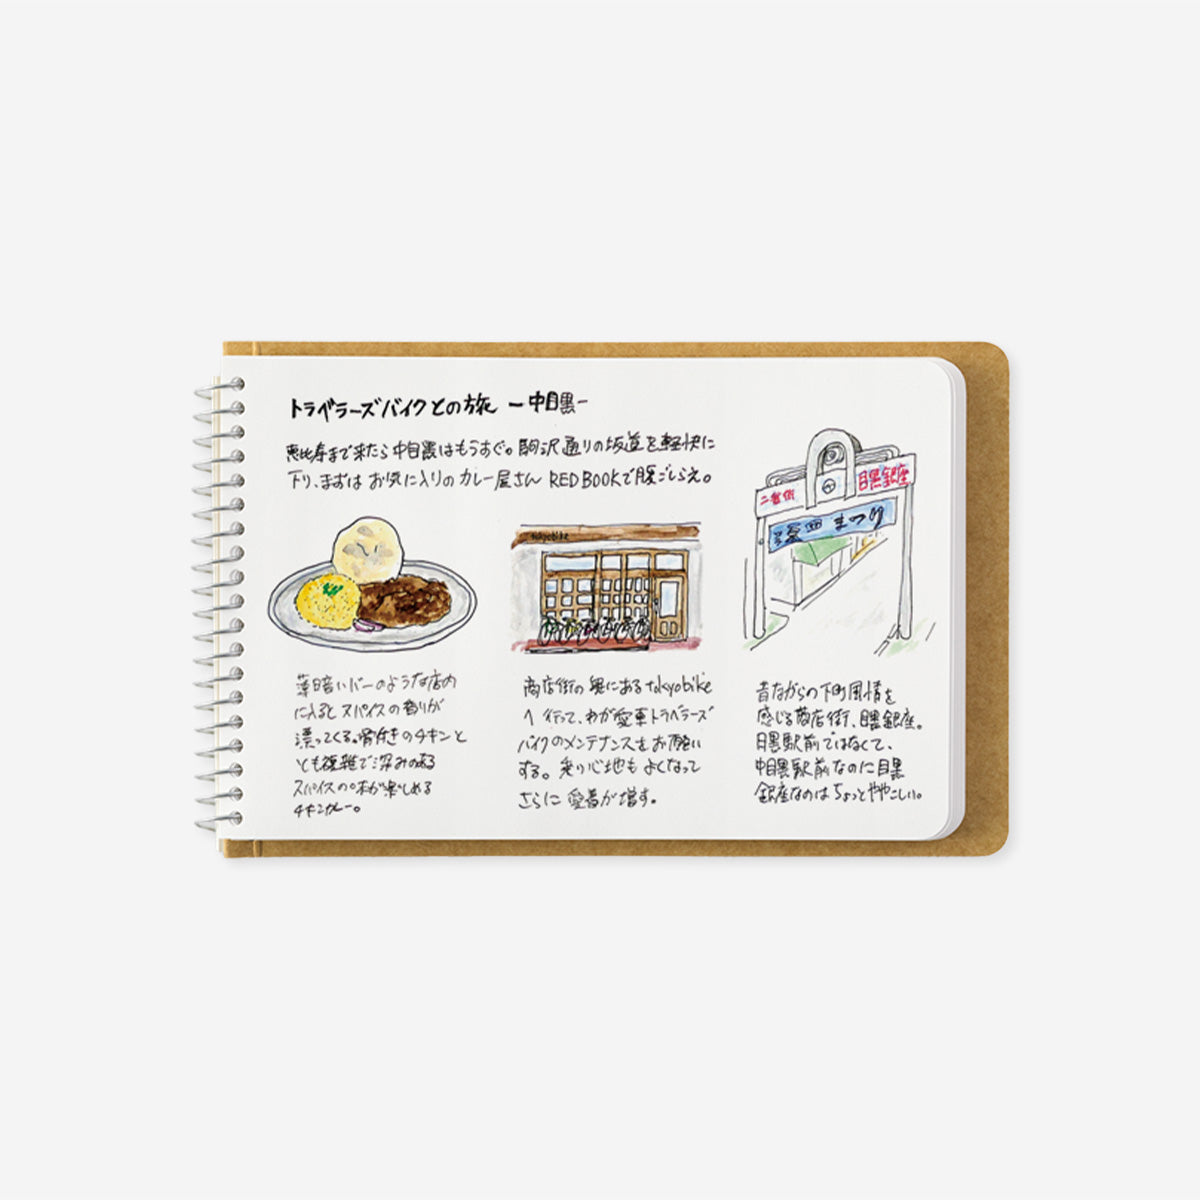 トラベラーズバイクとの旅 ー中目黒ー
恵比寿まで来たら中目黒はもうすぐ。駒沢通りの坂道を軽快に
下り、まずは お気に入りの カレー屋さん RED BOOKで腹ごしらえ。
tokyobike
二番街
目黒銀座
まつり
薄暗いバーのような店内
に入ると スパイスの香りが
漂ってくる。骨付きのチキンと
とも複雑で深みのある
スパイスの味が楽しめる
チキンカレー。
商店街の奥にあるtokyobike
へ 行って、わが愛車トラベラーズ
バイクのメンテナンスをお願い
する。乗り心地も よくなって
さらに 愛着が増す。
昔ながらの下町風情を
感じる商店街、目黒銀座。
目黒駅前ではなくて、
中目黒駅前なのに目黒
銀座なのは ちょっとややこしい。